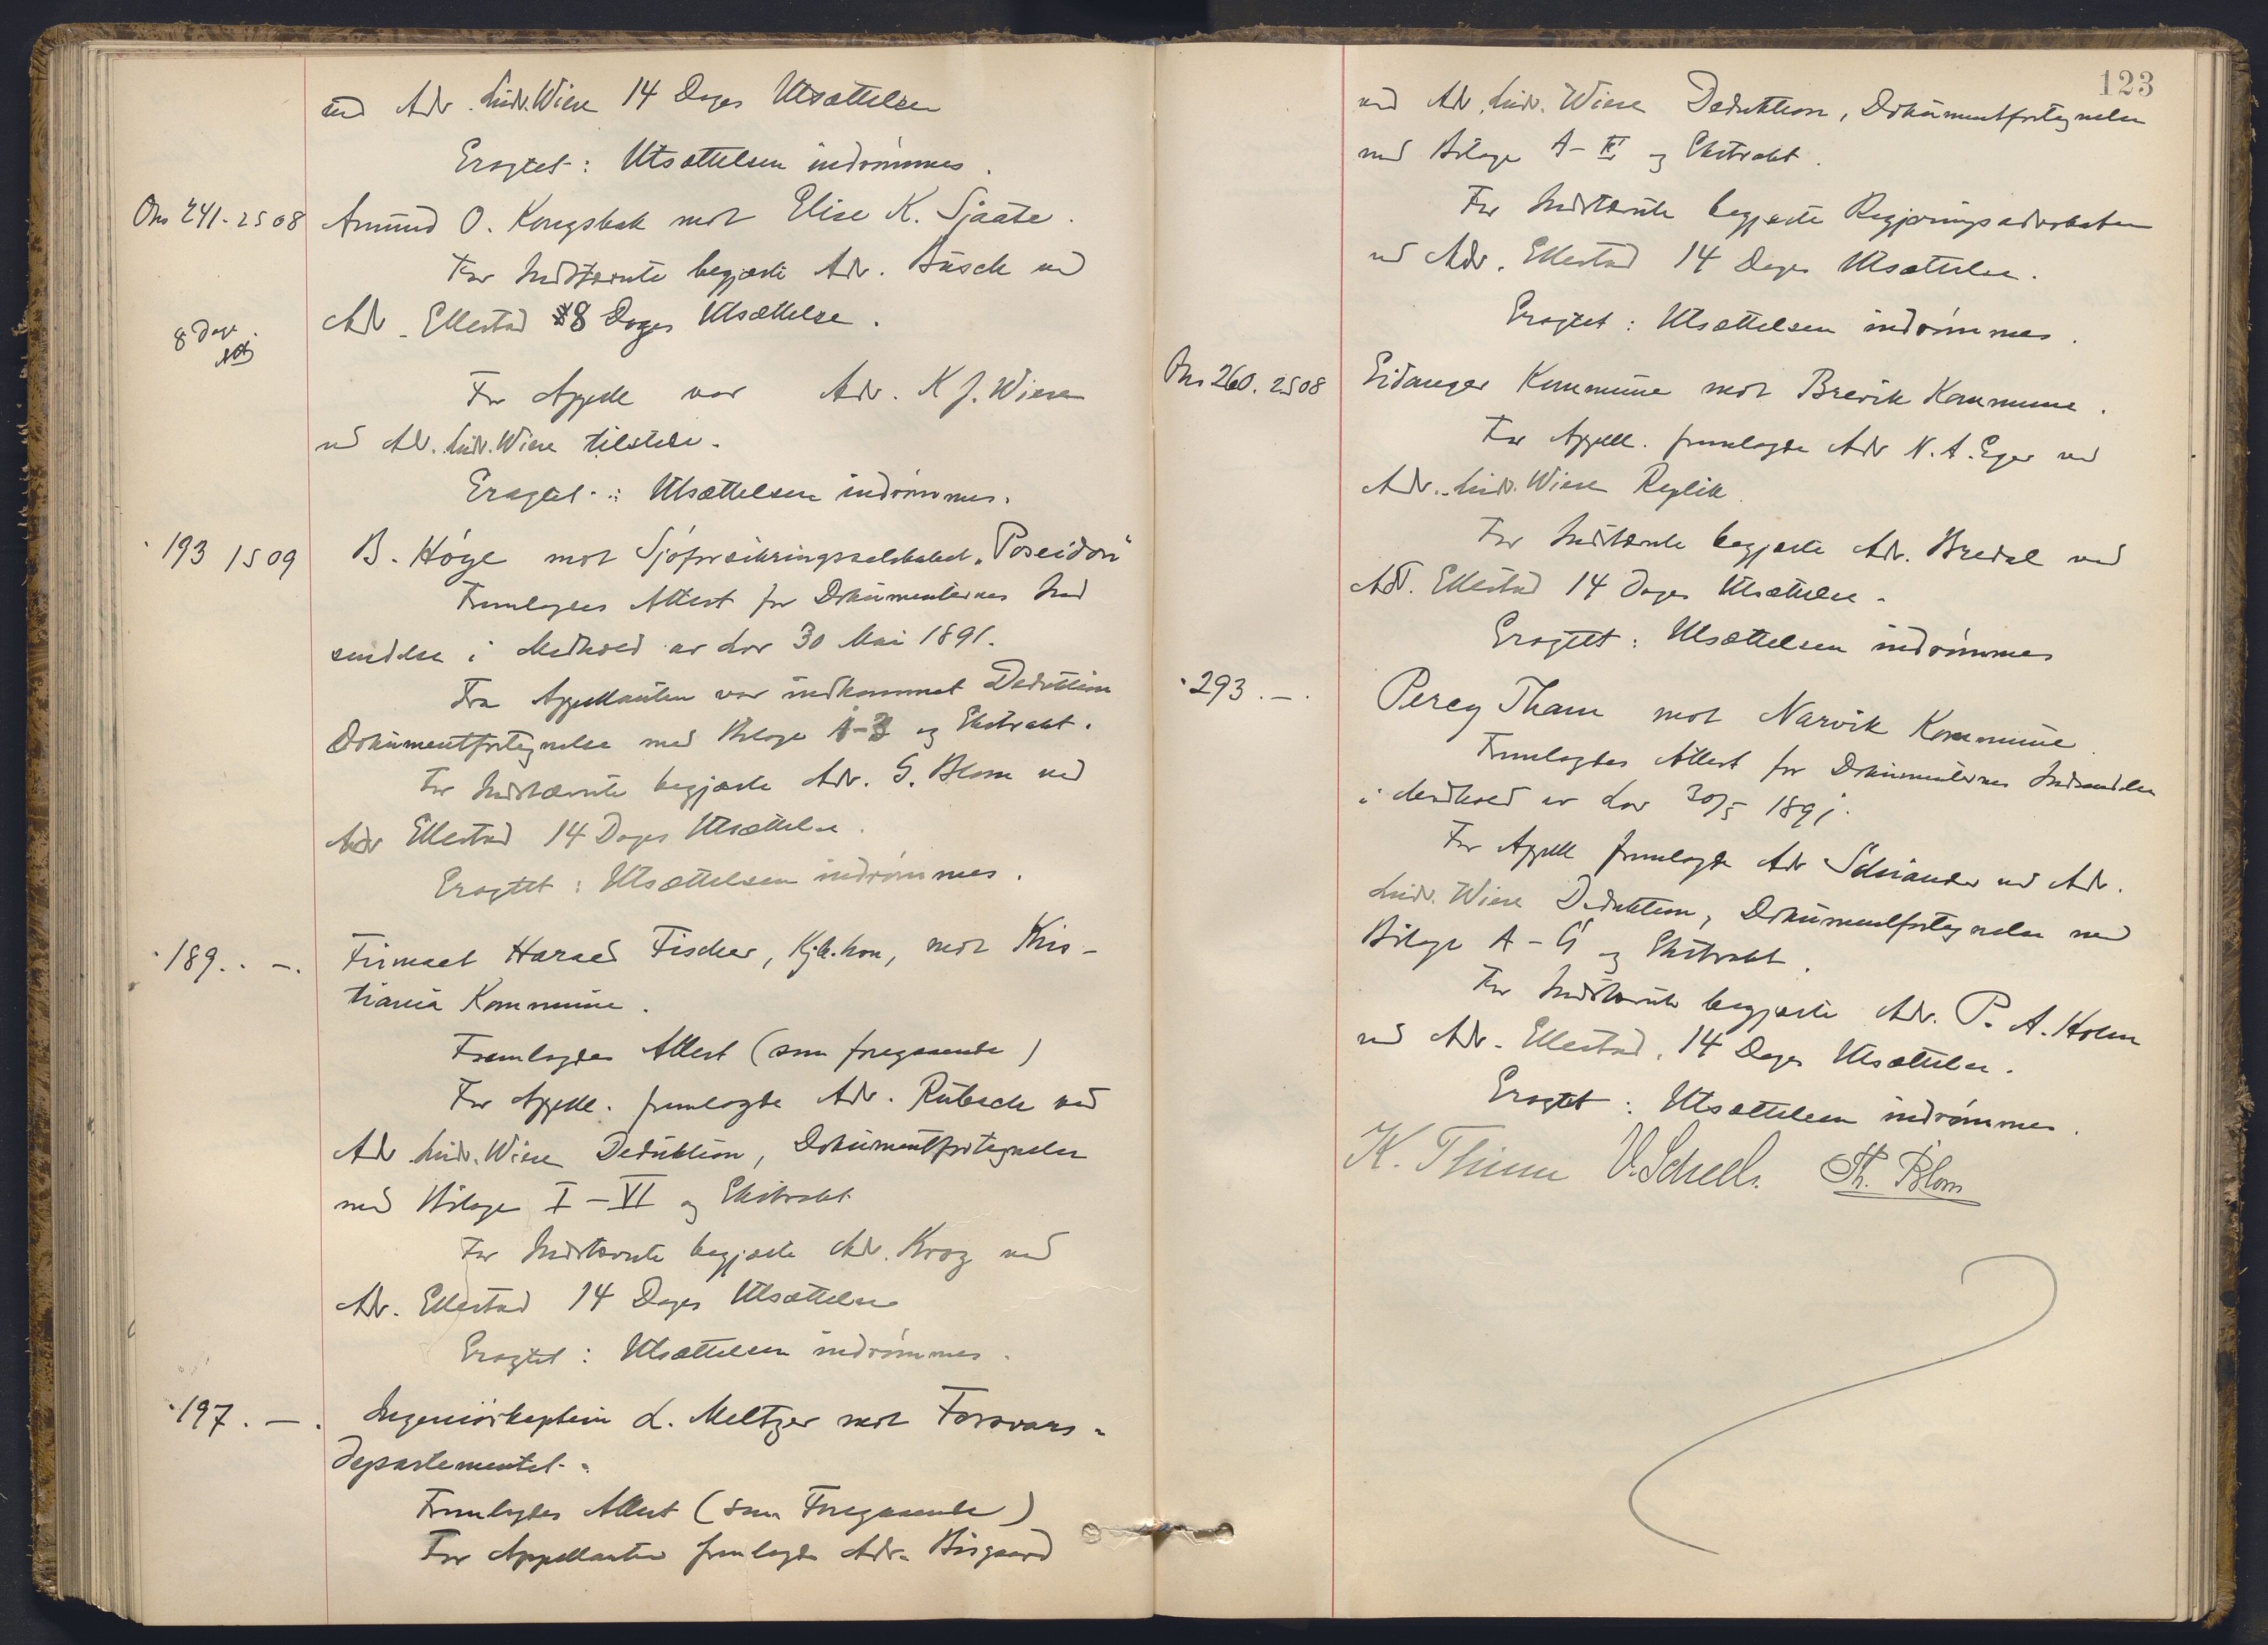 ved Adv. Ludv. Wiese 14 Dages Utsættelse
Eragtet: Utsættelsen indrømmes.
Ons 241. 2S 08
Amund O. Kongsbak mot Elise K. Sjaate.
For Indstævnte begjærte Adv. Busch ved
Adv. Ellestad 8 Dages Utsættelse.
8 Dage.
For Appell var Adv. K J. Wiese
ved Adv. Ludv. Wiese tilstede.
Eragtet: Utsættelsen indrømmes.
193 1S 09
B. Høye mot Sjøforsikringsselskabet „Poseidon"
Fremlagdes Attest for Dokumenternes Ind
sendelse i Medhold av Lov 30 Mai 1891.
Fra Appellanten var indkommet Deduktion
Dokumentfortegnelse med Bilage 1-3 og Ekstrakt.
For Indstævnte begjærte Adv. G. Blom ved
Adv Ellestad 14 Dages Utsættelse.
Eragtet: Utsættelsen indrømmes.
189. . —.
Firmaet Harald Fischer, Kjb.hvn, mot Kris-
tiania Kommune.
Fremlagdes Attest (som foregaaende)
For Appell. fremlagde Adv. Rubach ved
Adv Ludv. Wiese Deduktion, Dokumentfortegnelse
med Bilage I-VI og Ekstrakt
For Indstævnte begjærte Adv. Krag ved
Adv. Ellestad 14 Dages Utsættelse
Eragtet: Utsættelsen indrømmes.
197. —.
Ingeniørkaptein L. Meltzer mot Forsvars-
departementet.
Fremlagdes Attest (som Foregaaende)
For Appellanten fremlagde Adv. Bisgaard
123
ved Adv. Ludv. Wiese Deduktion, Dokumentfortegnelse
med Bilage A- og Ekstrakt.
For Indstævnte begjærte Regjeringsadvokaten
ved Adv. Ellestad 14 Dages Utsættelse.
Eragtet: Utsættelsen indrømmes.
Ons 260. 2S 08
Eidanger Kommune mot Brevik Kommune.
For Appell. fremlagde Adv N. A. Eger ved
Adv. Ludv. Wiese Replik.
For Indstævnte begjærte Adv. Bredal ved
Adv. Ellestad 14 Dages Utsættelse.
Eragtet: Utsættelsen indrømmes
293. —.
Percy Tham mot Narvik Kommune.
Fremlagdes Attest for Dokumenternes Indsendelse
i Medhold av Lov 30/5 1891.
For Appell fremlagde Adv Schiander ved Adv.
Ludv. Wiese Deduktion, Dokumentfortegnelse med
Bilage A-G og Ekstrakt.
For Indstævnte begjærte Adv. P. A. Holm
ved Adv. Ellestad, 14 Dages Utsættelse.
Eragtet: Utsættelsen indrømmes.
K. Thinn V. Scheel. Th. Blom